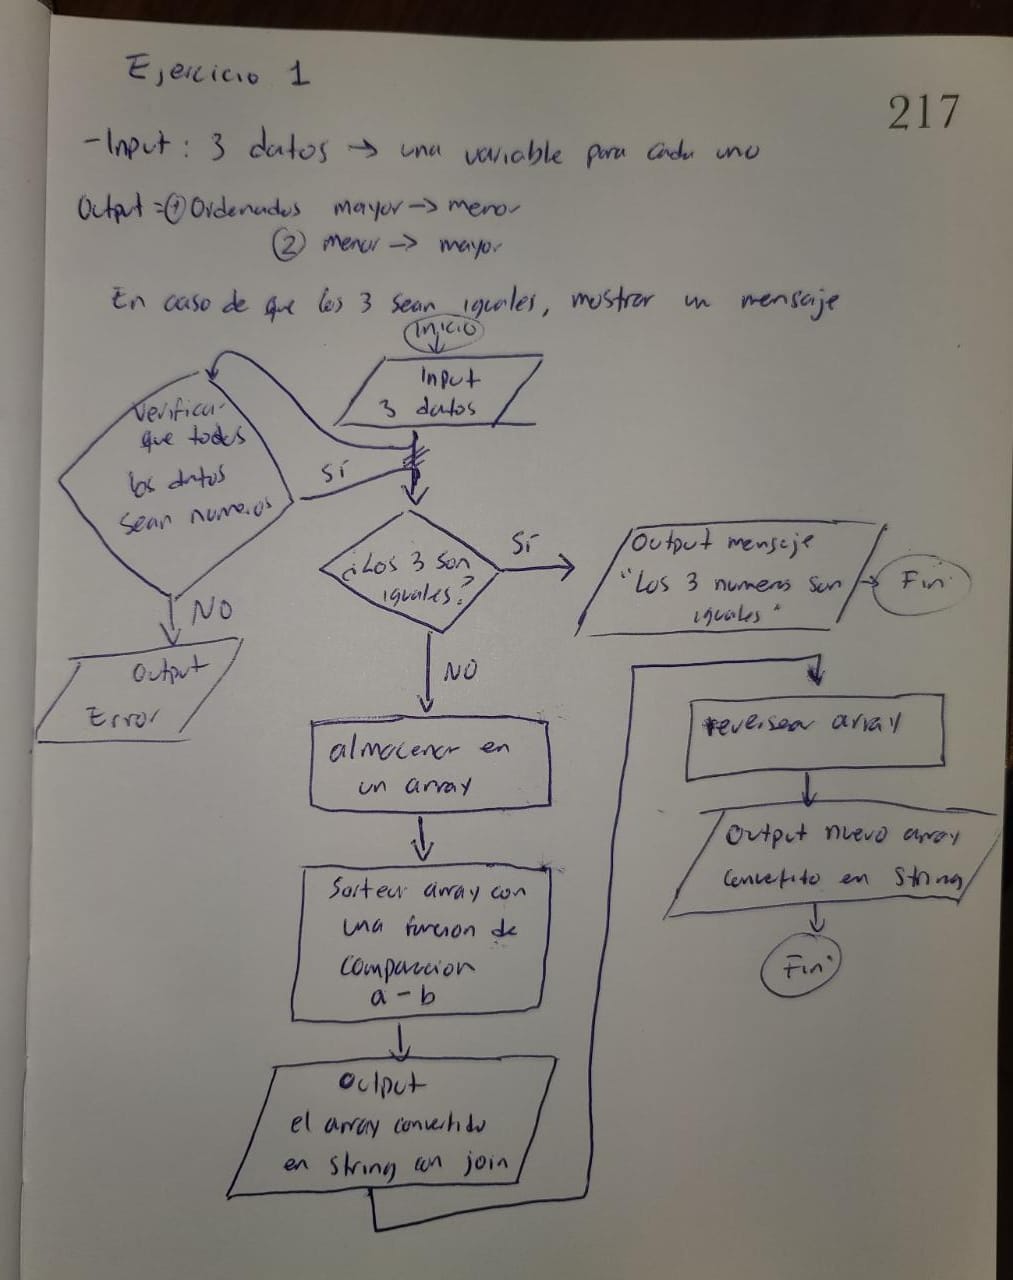 Ejercicio 1
217
- Input: 3 datos → una variable para cada uno
Output = ① Ordenados mayor → menor
② menor → mayor
En caso de que los 3 sean iguales, mostrar un mensaje
Inicio
Input
3 datos
Verificar
que todos
los datos
sean numeros
Sí
NO
Output
Error
¿Los 3 son
iguales?
Sí
Output mensaje
"Los 3 numeros son
iguales"
Fin
NO
almacenar en
un array
Sortear array con
una funcion de
comparacion
a - b
Output
el array convertido
en string con join
reversear array
Output nuevo array
convertito en string
Fin